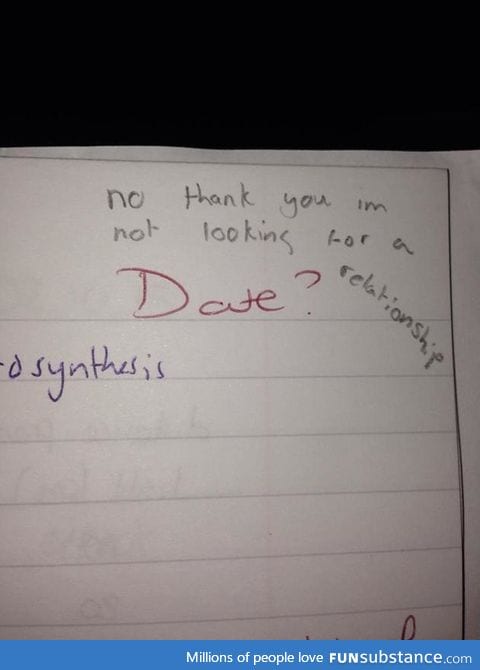 no thank you im
not looking for a
relationship
Date?
osynthesis
Millions of people love FUNsubstance.com